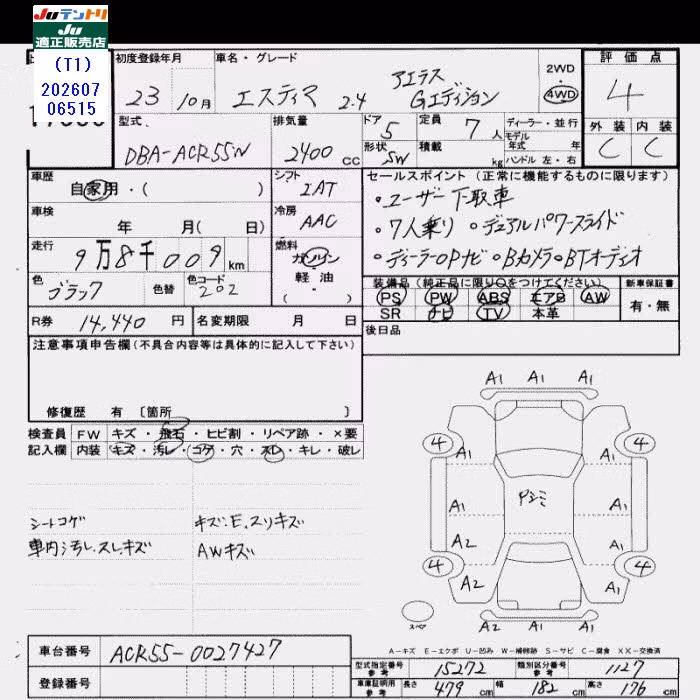 Juテントリ
Ju
適正販売店
(T1)
202607
06515
初度登録年月
車名・グレード
2WD
評価点
23 10月
エスティマ 2.4 アエラス Gエディション
4WD
4
型式
排気量
ドア 5
定員 7人
ディーラー・並行
モデル 年式 年
外装 内装
DBA-ACR55W
2400 cc
形状 SW
積載 kg
ハンドル 左・右
C C
車歴
自家用・( )
シフト
IAT
セールスポイント(正常に機能するものに限ります)
・ユーザー下取車
車検
年 月( 日)
冷房
AAC
・7人乗り ・デュアルパワースライド
走行
9万8千009km
燃料
ガソリン
軽・油
( )
・ディーラーOPナビ ・Bカメラ・BTオーディオ
色
ブラック
色替
色コード
202
装備品(純正品に限り○をつけてください)
新車保証書
PS PW ABS エアB AW
有・無
R券 14,440円
名変期限 月 日
SR ナビ TV 本革
後日品
注意事項申告欄(不具合内容等は具体的に記入して下さい)
修復歴 有 〔箇所 〕
検査員
記入欄
FW キズ・飛石・ヒビ割・リペア跡・×要
内装 キズ・汚レ・コゲ・穴・スレ・キレ・破レ
シートコゲ
キズ.E.スリキズ
車内汚レ.スレ.キズ
AWキズ
A1 A1 A1
4 4
A1 A1
A1 A1
A2 A1
4 4
A2 A1
A2 A1 A1
スペア
A-キズ E-エクボ U-凹み W-補修跡 S-サビ C-腐食 XX-交換済
車台番号
ACR55-0027427
登録番号
型式指定番号 参考 15272
類別区分番号 参考 1127
車庫証明用 参考 長さ 479cm 幅 182cm 高さ 176cm